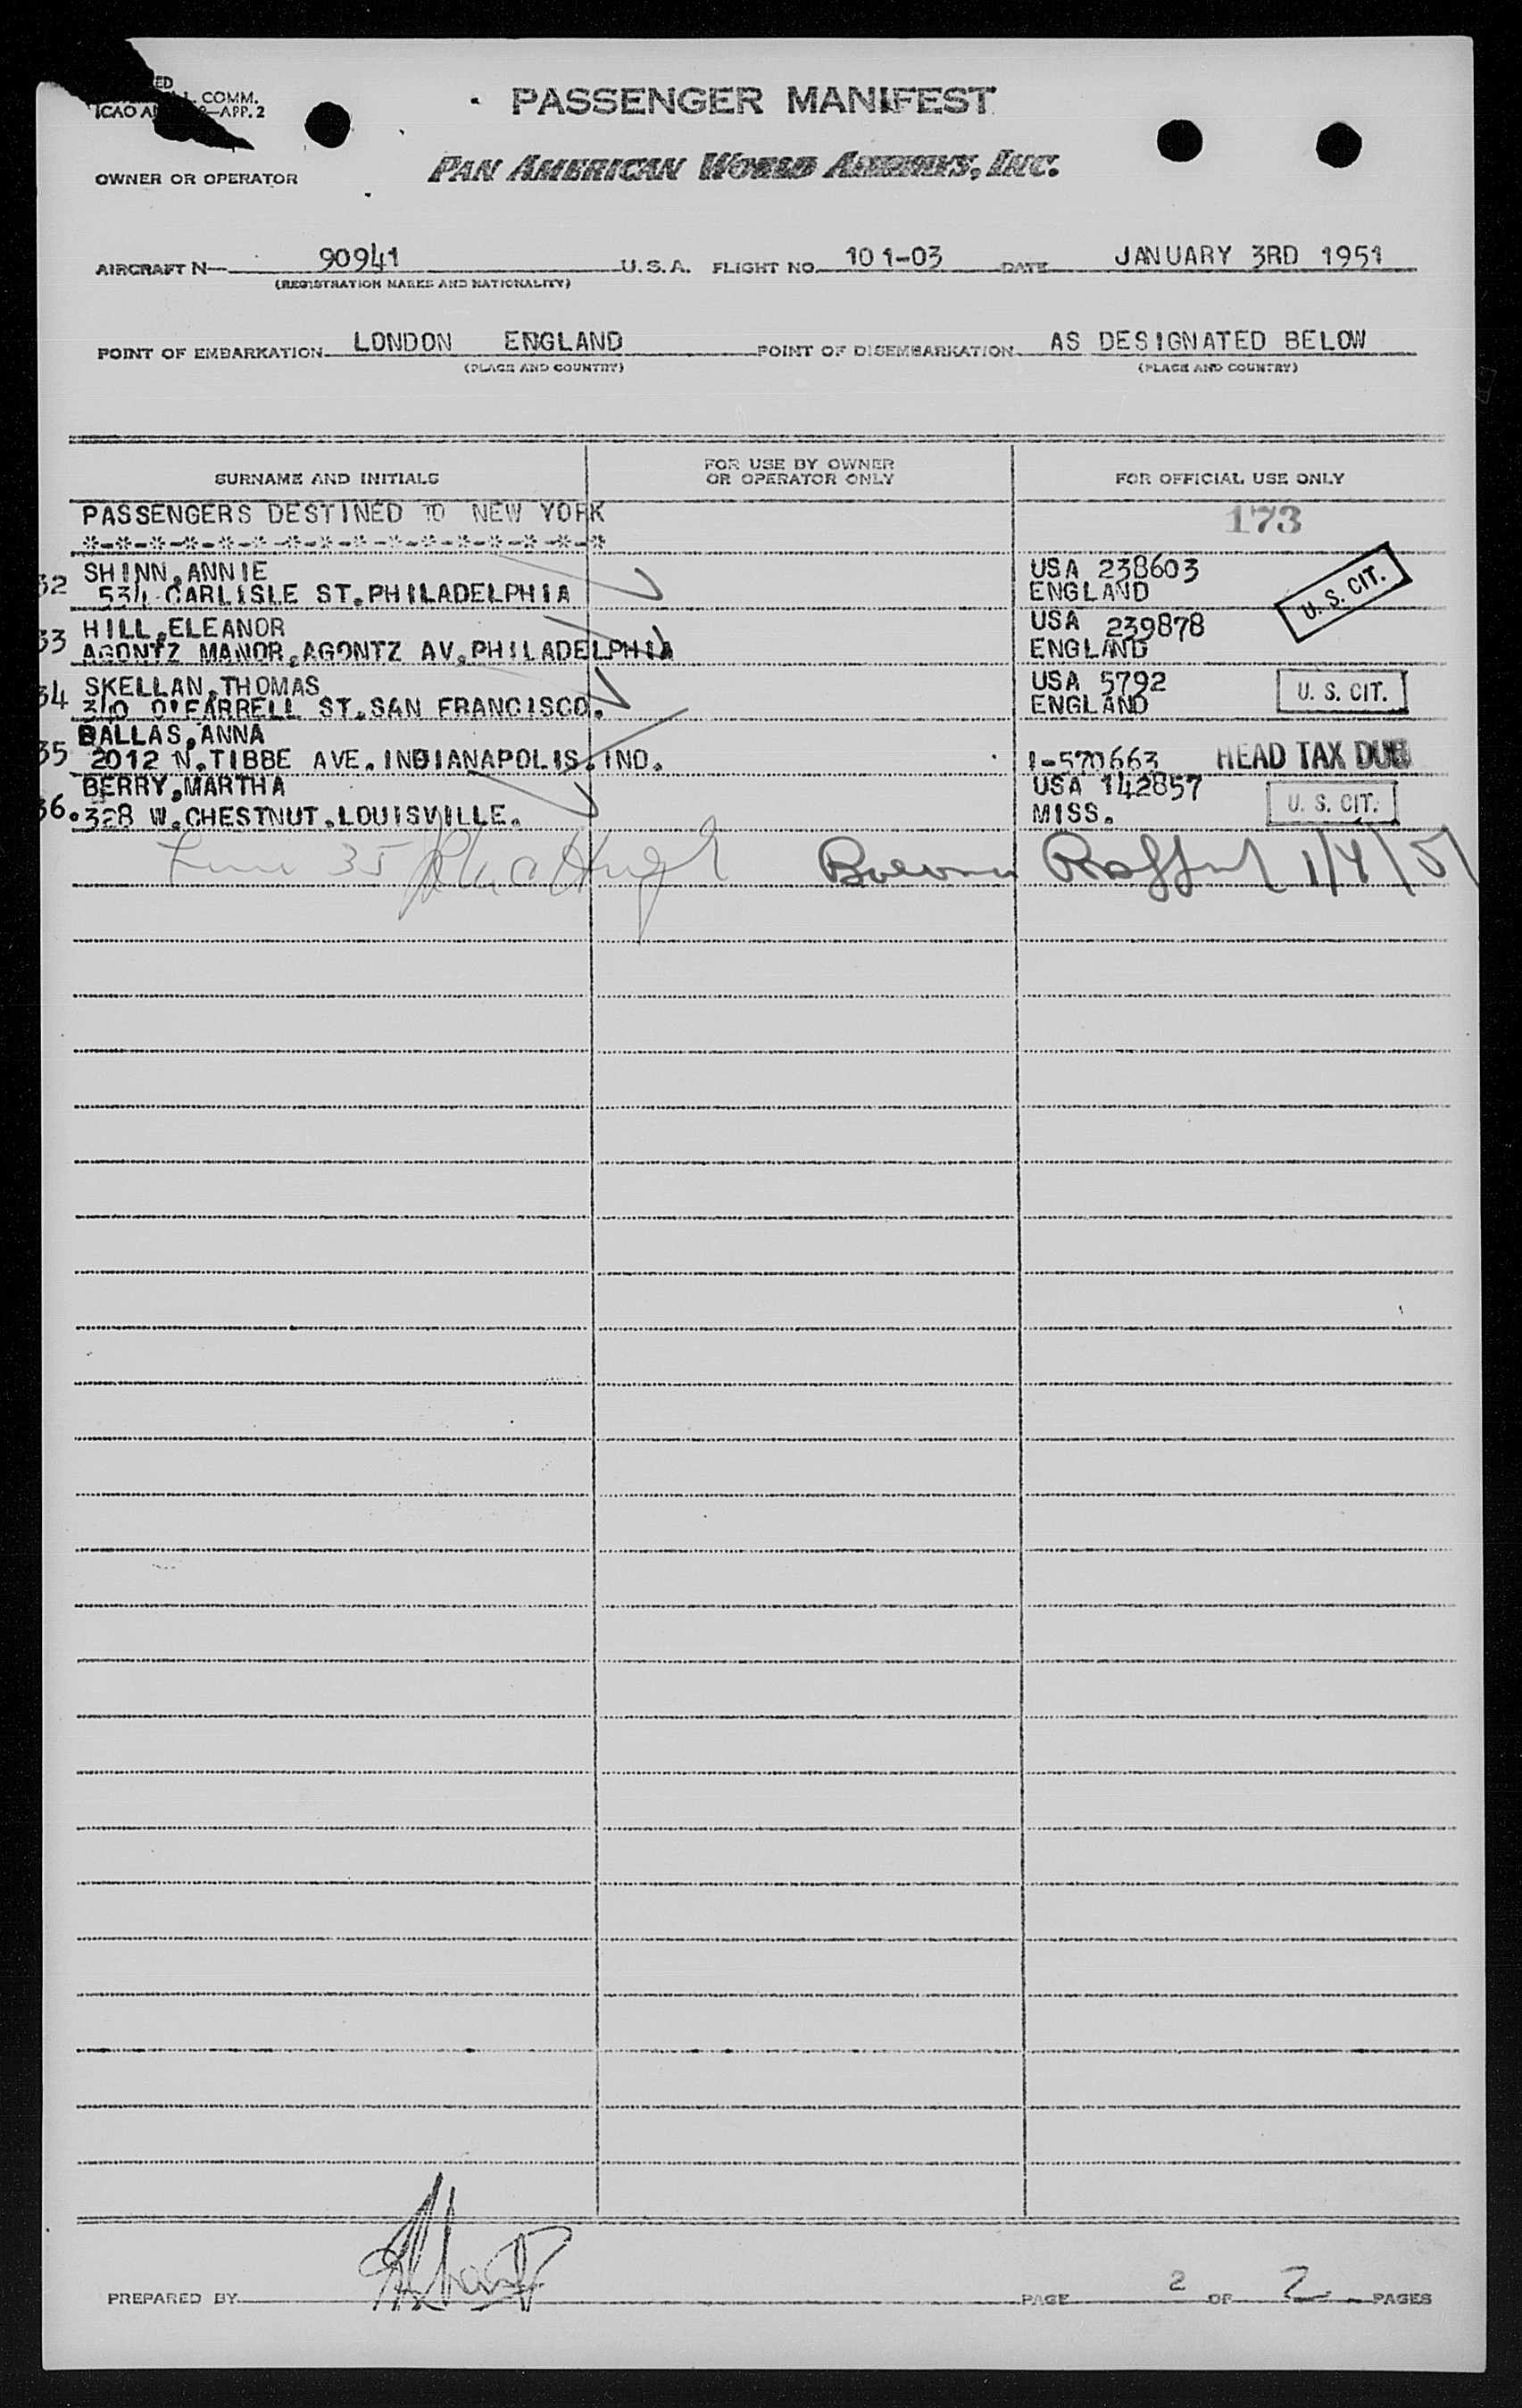 ED
COMM.
ICAO AN -APP. 2
PASSENGER MANIFEST
OWNER OR OPERATOR PAN AMERICAN WORLD AIRWAYS, INC.
AIRCRAFT N- 90941 U.S.A. FLIGHT NO. 101-03 DATE JANUARY 3RD 1951
(REGISTRATION MARKS AND NATIONALITY)
POINT OF EMBARKATION LONDON ENGLAND POINT OF DISEMBARKATION AS DESIGNATED BELOW
(PLACE AND COUNTRY) (PLACE AND COUNTRY)
SURNAME AND INITIALS FOR USE BY OWNER OR OPERATOR ONLY FOR OFFICIAL USE ONLY
PASSENGERS DESTINED TO NEW YORK 173
*-*-*-*-*-*-*-*-*-*-*-*-*-*-*-*
32 SHINN,ANNIE USA 238603
534 CARLISLE ST.PHILADELPHIA ENGLAND U. S. CIT.
33 HILL,ELEANOR USA 239878
AGONTZ MANOR,AGONTZ AV,PHILADELPHIA ENGLAND
34 SKELLAN,THOMAS USA 5792
340 O'FARRELL ST.SAN FRANCISCO. ENGLAND U. S. CIT.
35 DALLAS,ANNA
2012 N.TIBBE AVE.INDIANAPOLIS.IND. I-570663 HEAD TAX DUE
BERRY,MARTHA USA 142857
36. 328 W.CHESTNUT.LOUISVILLE. MISS. U. S. CIT.
Line 35 1/4/51
PREPARED BY PAGE 2 OF 2 PAGES